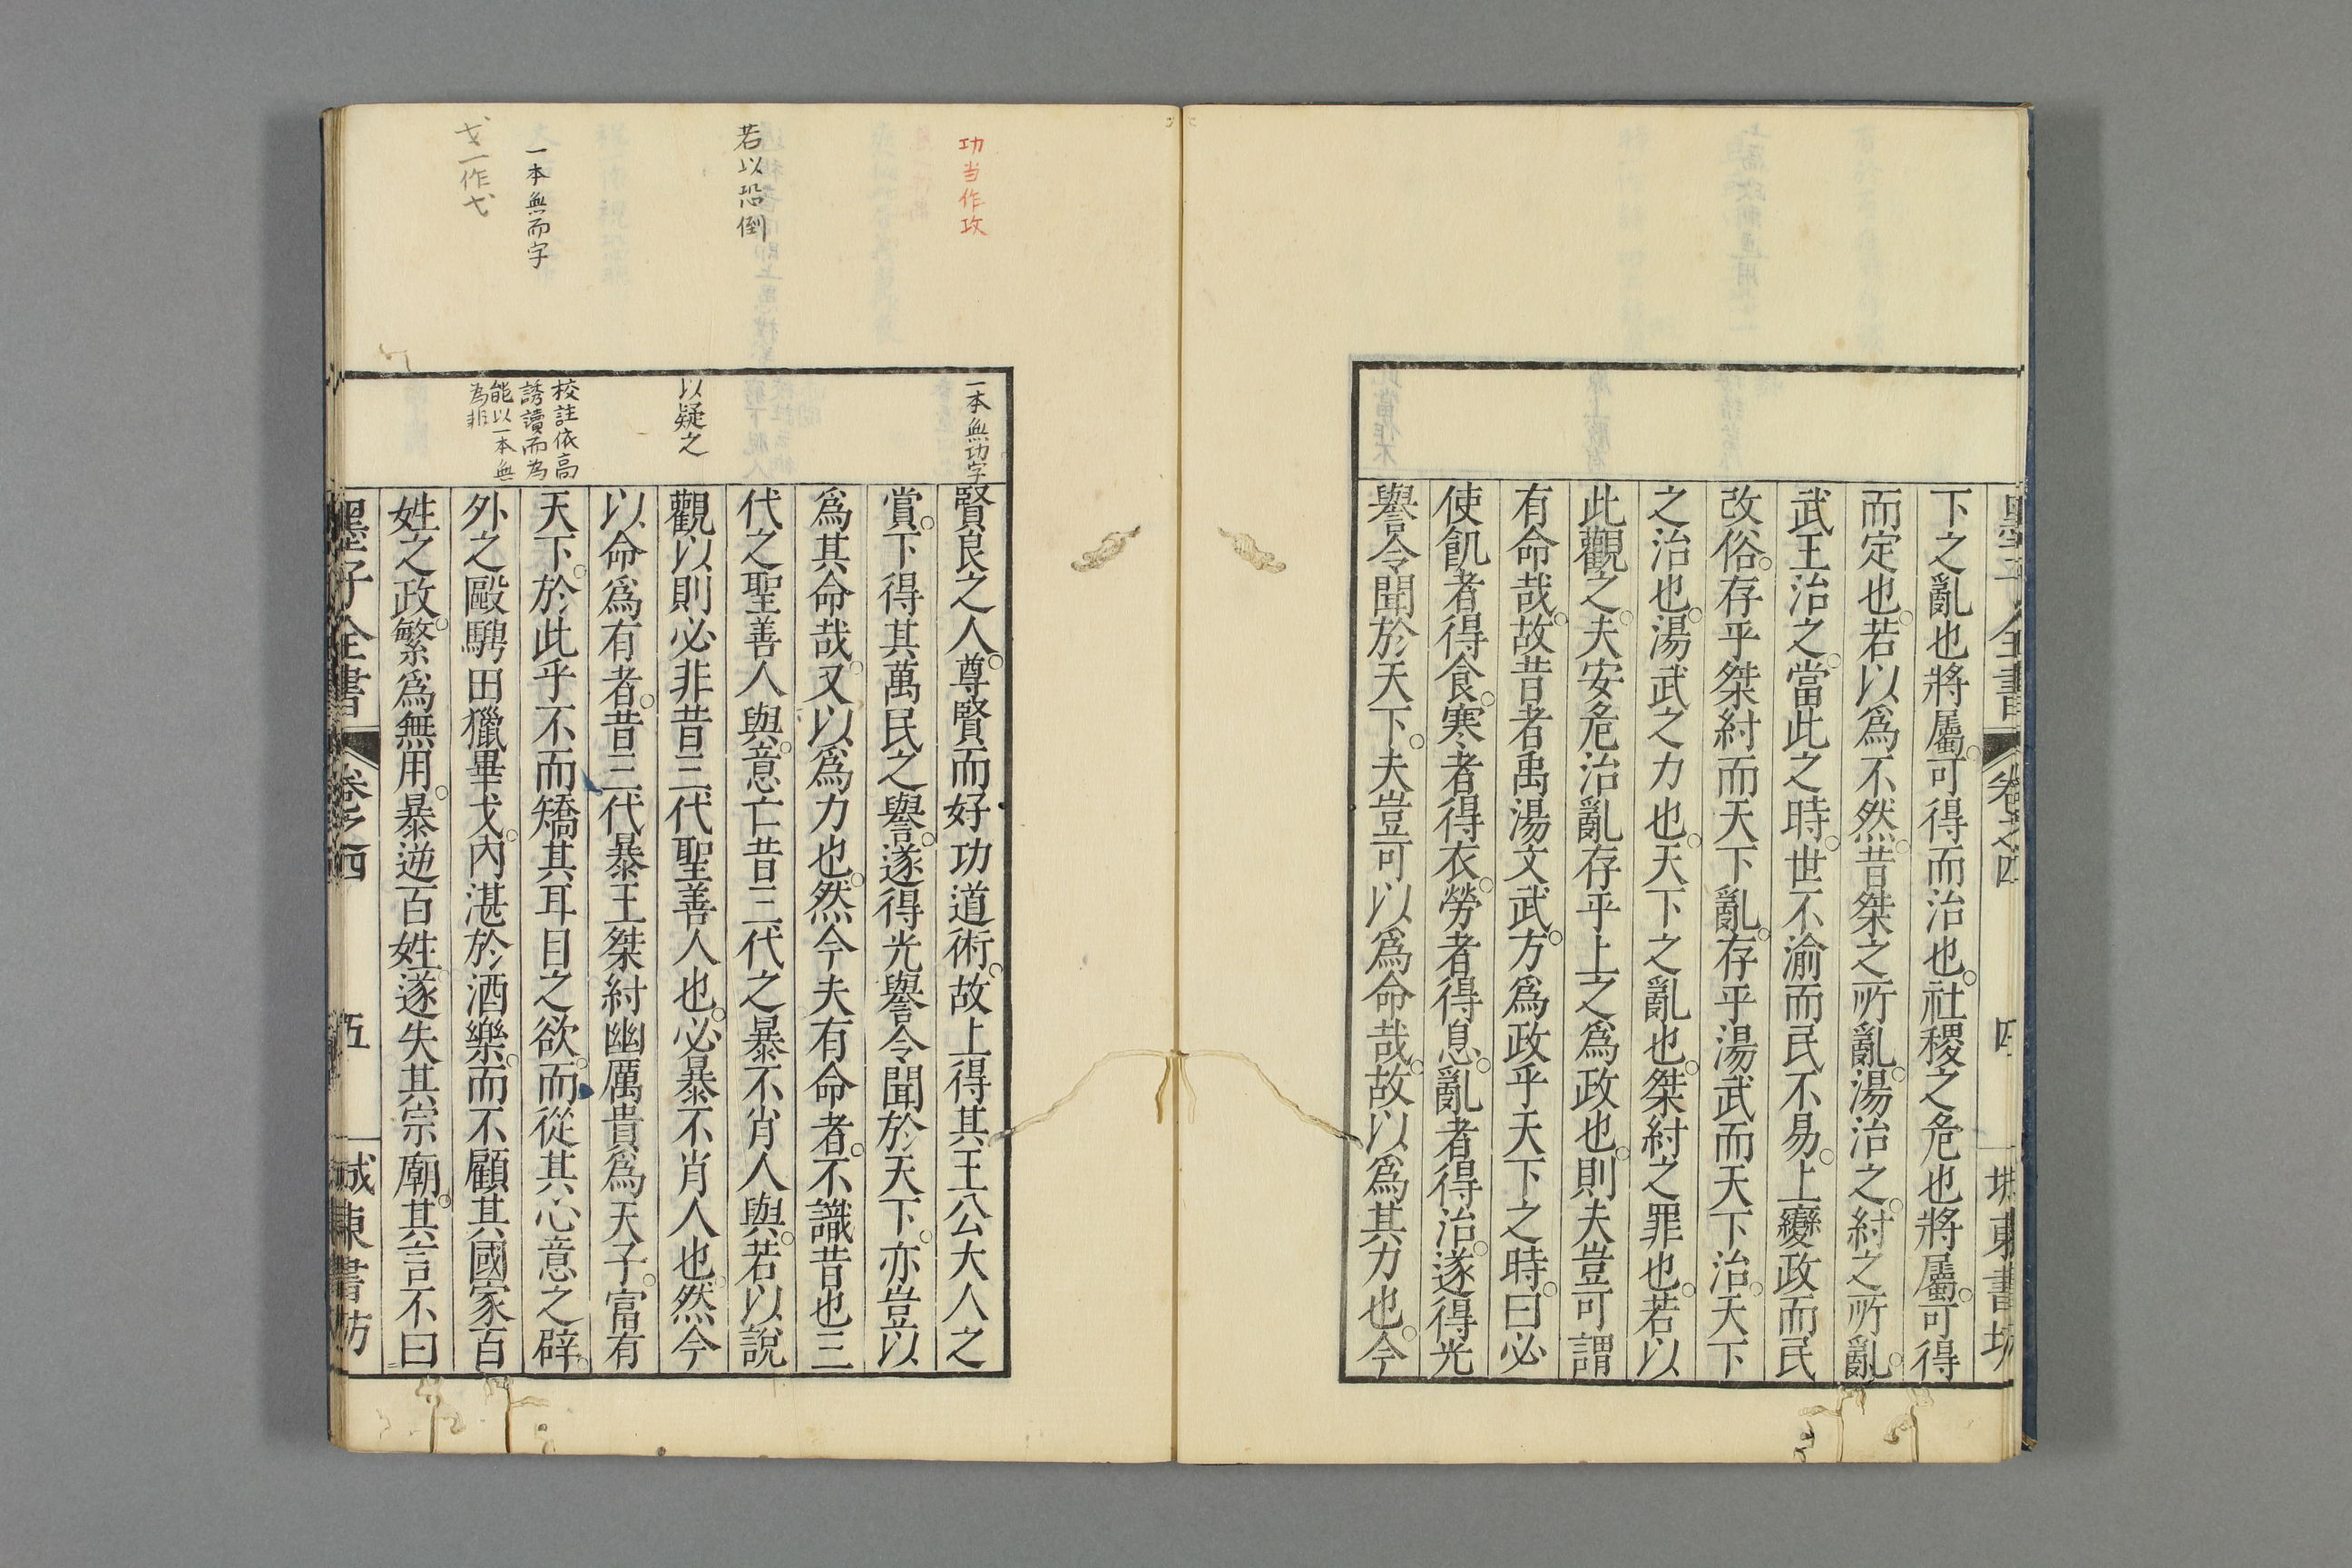 墨子全書 卷之四 四 城東書坊
下之亂也將屬可得而治也。社稷之危也將屬。可得
而定也。若以爲不然。昔桀之所亂。湯治之。紂之所亂。
武王治之。當此之時。世不渝而民不易。上變政而民
改俗。存乎桀紂而天下亂。存乎湯武而天下治。天下
之治也。湯武之力也。天下之亂也。桀紂之罪也。若以
此觀之。夫安危治亂存乎上之爲政也。則夫豈可謂
有命哉。故昔者禹湯文武。方爲政乎天下之時。曰必
使飢者得食。寒者得衣。勞者得息。亂者得治。遂得光
譽令聞於天下。夫豈可以爲命哉。故以爲其力也。今
功当作攻
一本無功字
賢良之人。尊賢而好功道術。故上得其王公大人之
賞。下得其萬民之譽。遂得光譽令聞於天下。亦豈以
爲其命哉。又以爲力也。然今夫有命者。不識昔也三
若以恐倒
代之聖善人與。意亡昔三代之暴不肖人與。若以說
以疑之
觀以則必非昔三代聖善人也。必暴不肖人也。然今
以命爲有者。昔三代暴王桀紂幽厲貴爲天子。富有
一本無而字
校註依高
誘讀而為
能以一本無
為非
天下。於此乎不而矯其耳目之欲。而從其心意之辟。
戈一作弋
外之敺騁田獵畢戈。內湛於酒樂。而不顧其國家百
姓之政。繁爲無用。暴逆百姓。遂失其宗廟。其言不曰
墨子全書 卷之四 五 城東書坊